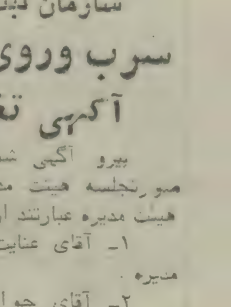 سازمان
سرب وروی
آگهی
پیرو آگهی
صورتجلسه هیئت
هیئت مدیره عبارتند از
۱ـ آقای عنایت
مدیره .
۲ـ آقای